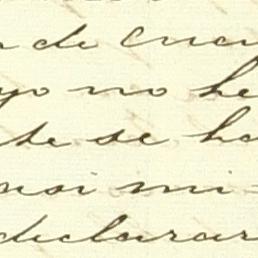 de cuen
yo no he
te se ha
asi mi
declarar